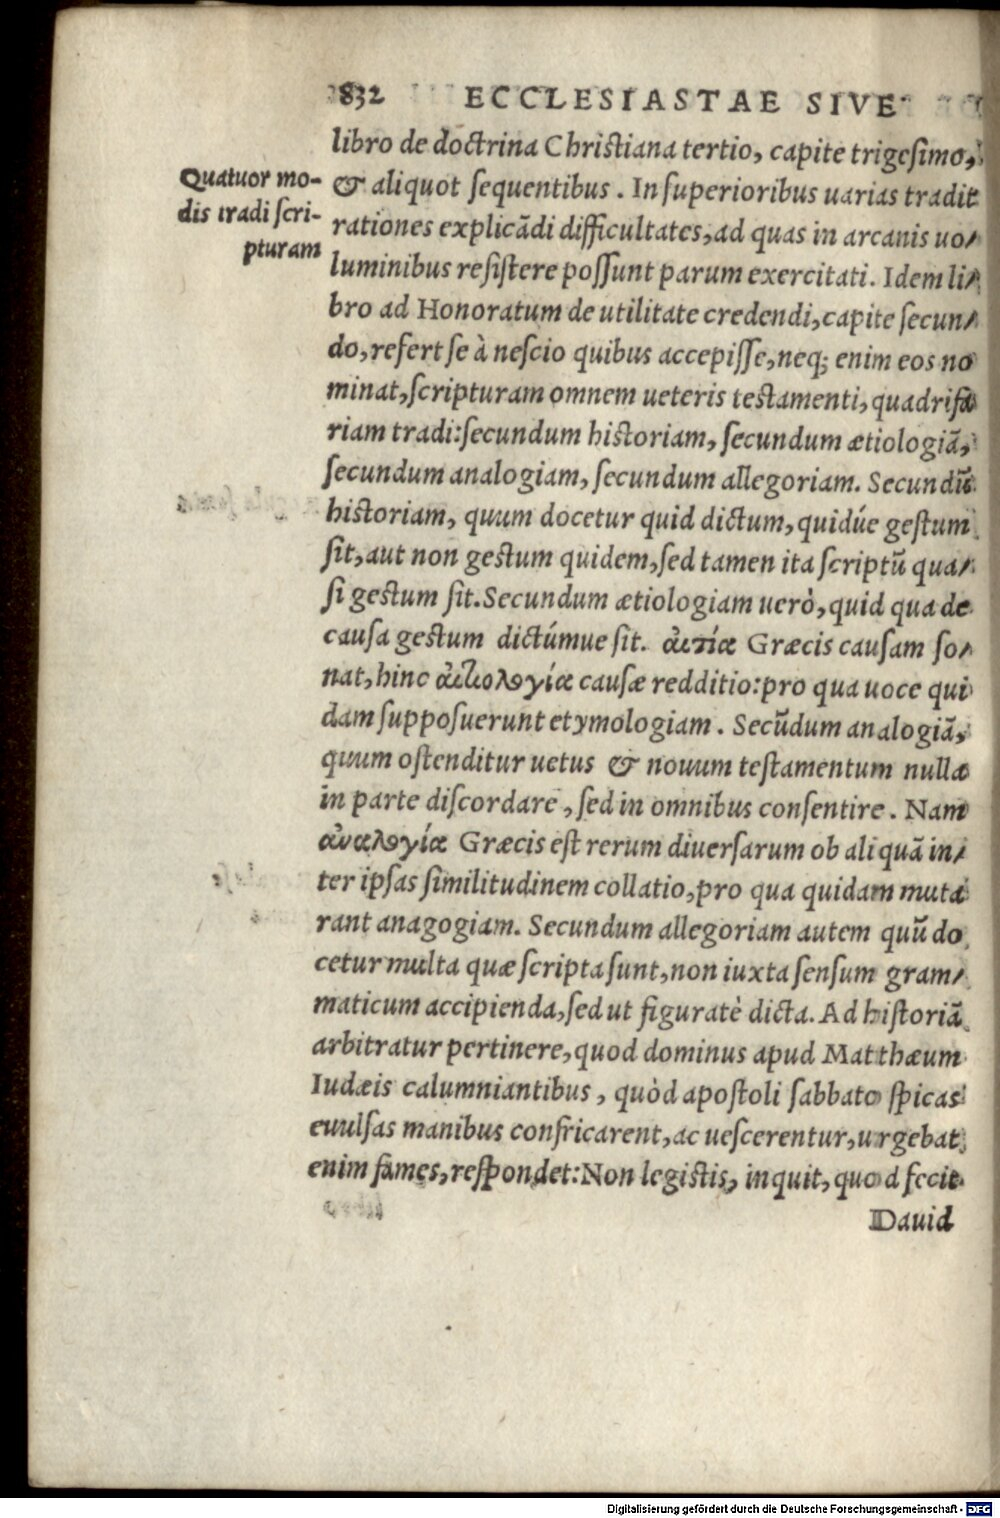 832 ECCLESIASTAE SIVE
libro de doctrina Christiana tertio, capite trigesimo,
Quatuor mo-
dis tradi scri-
pturam
& aliquot sequentibus. In superioribus uarias tradit
rationes explicādi difficultates, ad quas in arcanis uo/
luminibus resistere possunt parum exercitati. Idem li/
bro ad Honoratum de utilitate credendi, capite secun/
do, refert se à nescio quibus accepisse, neq; enim eos no
minat, scripturam omnem ueteris testamenti, quadrifa
riam tradi: secundum historiam, secundum ætiologiā,
secundum analogiam, secundum allegoriam. Secundū
historiam, quum docetur quid dictum, quidúe gestum
sit, aut non gestum quidem, sed tamen ita scriptū qua/
si gestum sit. Secundum ætiologiam uerò, quid qua de
causa gestum dictúmue sit. αἰτία Græcis causam so/
nat, hinc αἰτιολογία causæ redditio: pro qua uoce qui
dam supposuerunt etymologiam. Secūdum analogiā,
quum ostenditur uetus & nouum testamentum nulla
in parte discordare, sed in omnibus consentire. Nam
ἀναλογία Græcis est rerum diuersarum ob aliquā in/
ter ipsas similitudinem collatio, pro qua quidam muta
rant anagogiam. Secundum allegoriam autem quū do
cetur multa quæ scripta sunt, non iuxta sensum gram/
maticum accipienda, sed ut figuratè dicta. Ad historiā
arbitratur pertinere, quod dominus apud Matthæum
Iudæis calumniantibus, quòd apostoli sabbato spicas
euulsas manibus confricarent, ac uescerentur, urgebat
enim fames, respondet: Non legistis, inquit, quod fecit
Dauid
Digitalisierung gefördert durch die Deutsche Forschungsgemeinschaft - DFG